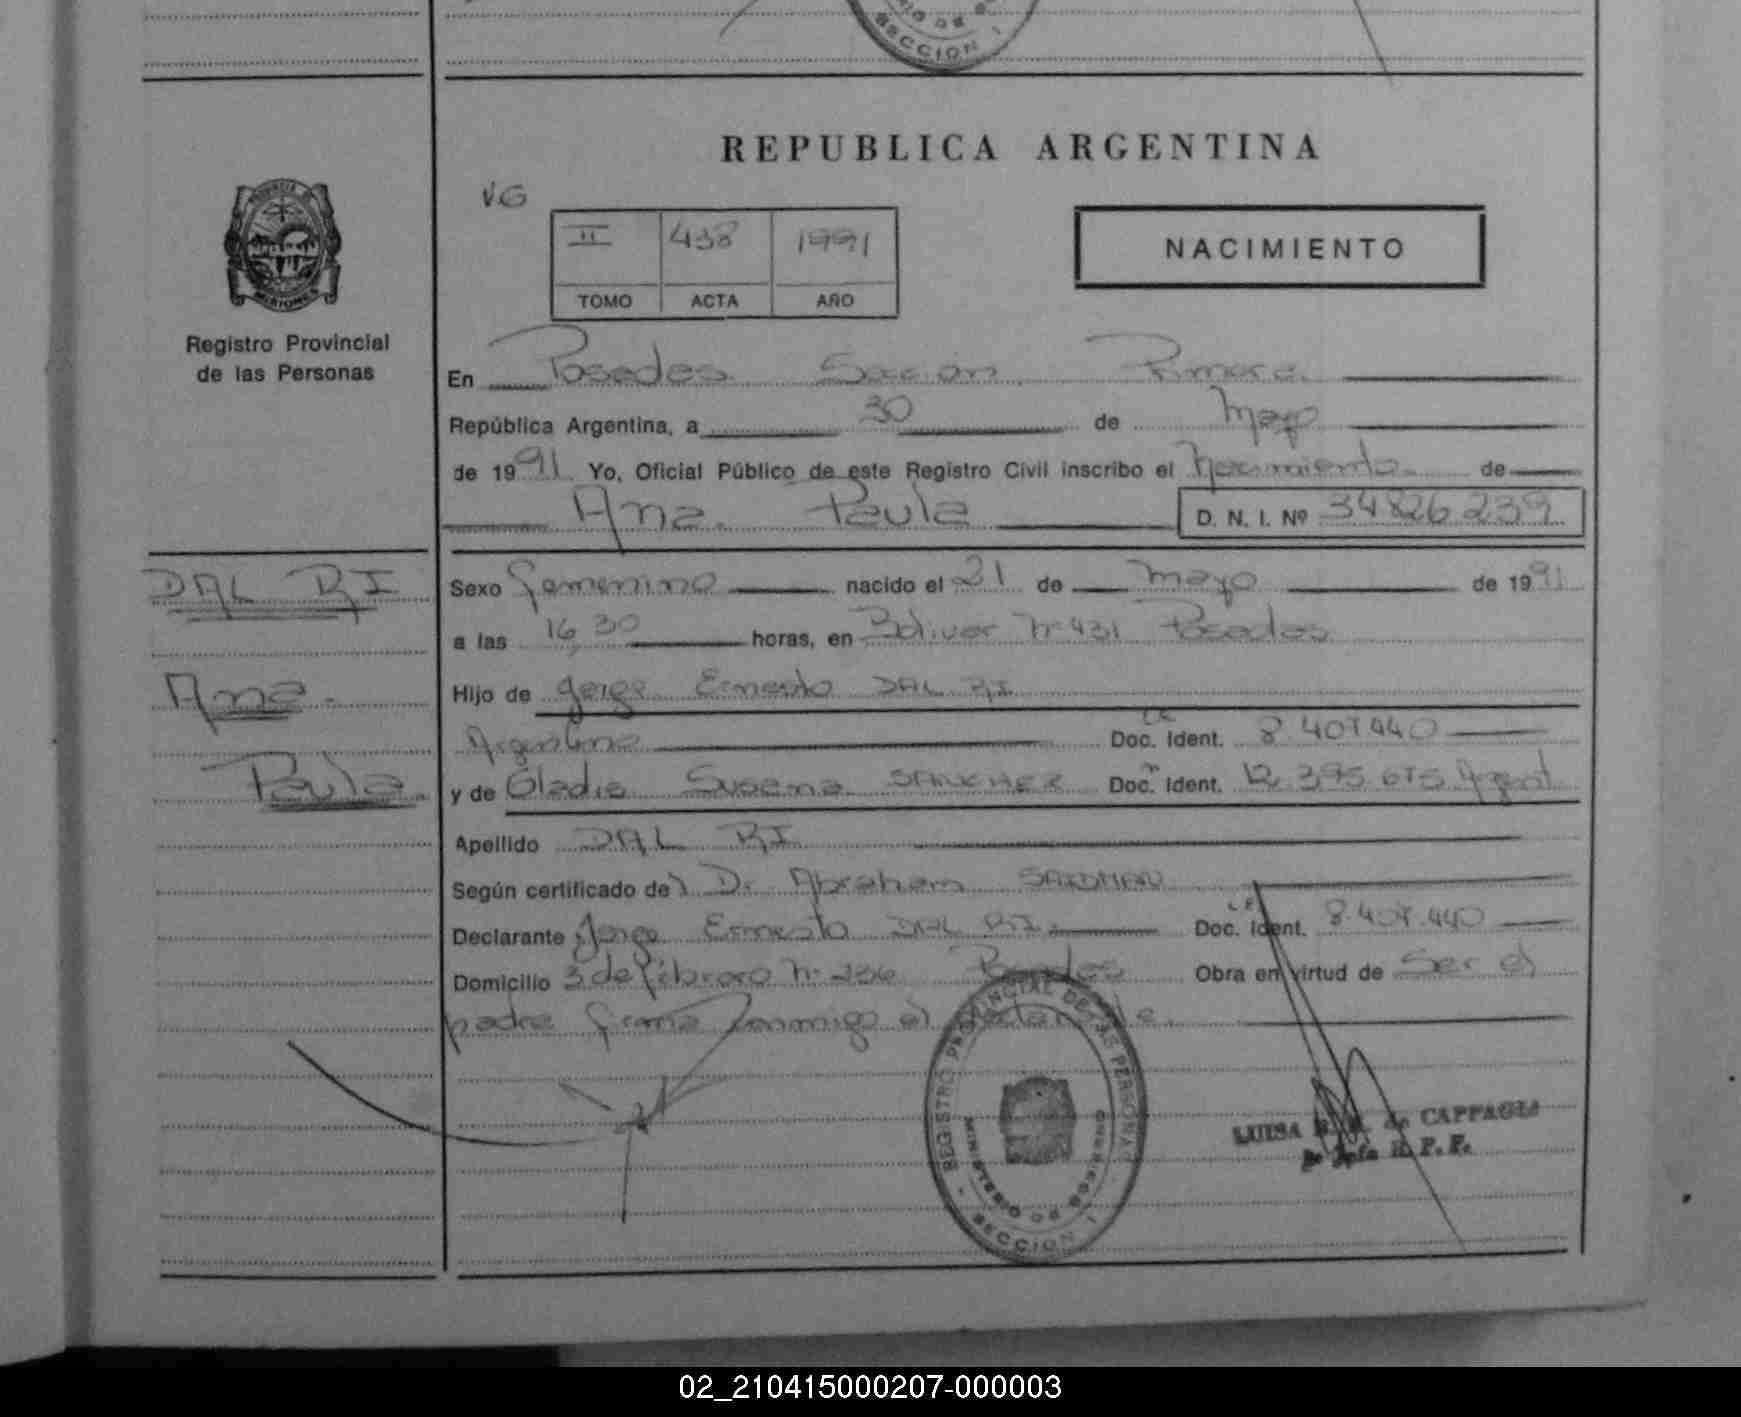 SECCION 1
REPUBLICA ARGENTINA
VG
II 438 1991
TOMO ACTA AÑO
NACIMIENTO
PROVINCIA DE
MISIONES
Registro Provincial
de las Personas
En Posadas Sección Primera
República Argentina, a 30 de Mayo
de 1991 Yo, Oficial Público de este Registro Civil inscribo el Nacimiento de
Ana Paula D. N. I. Nº 34826239
DAL RI
Ana
Paula
Sexo femenino nacido el 21 de mayo de 1991
a las 16,30 horas, en Bolivar Nº 431 Posadas
Hijo de Jorge Ernesto DAL RI
Argentino Doc. Ident. 8.407.440
y de Gladis Susana SANCHEZ Doc. Ident. 12.395.675 Argent
Apellido DAL RI
Según certificado de Dr. Abraham SAIDMAN
Declarante Jorge Ernesto DAL RI LE Doc. Ident. 8.407.440
Domicilio 3 de febrero Nº 236 Posadas Obra en virtud de Ser el
padre firma conmigo el declarante.
REGISTRO PROVINCIAL DE LAS PERSONAS
MINISTERIO DE GOBIERNO
SECCION 1
LUISA de CAPPAGLI
Jefa R. P. P.
02_210415000207-000003